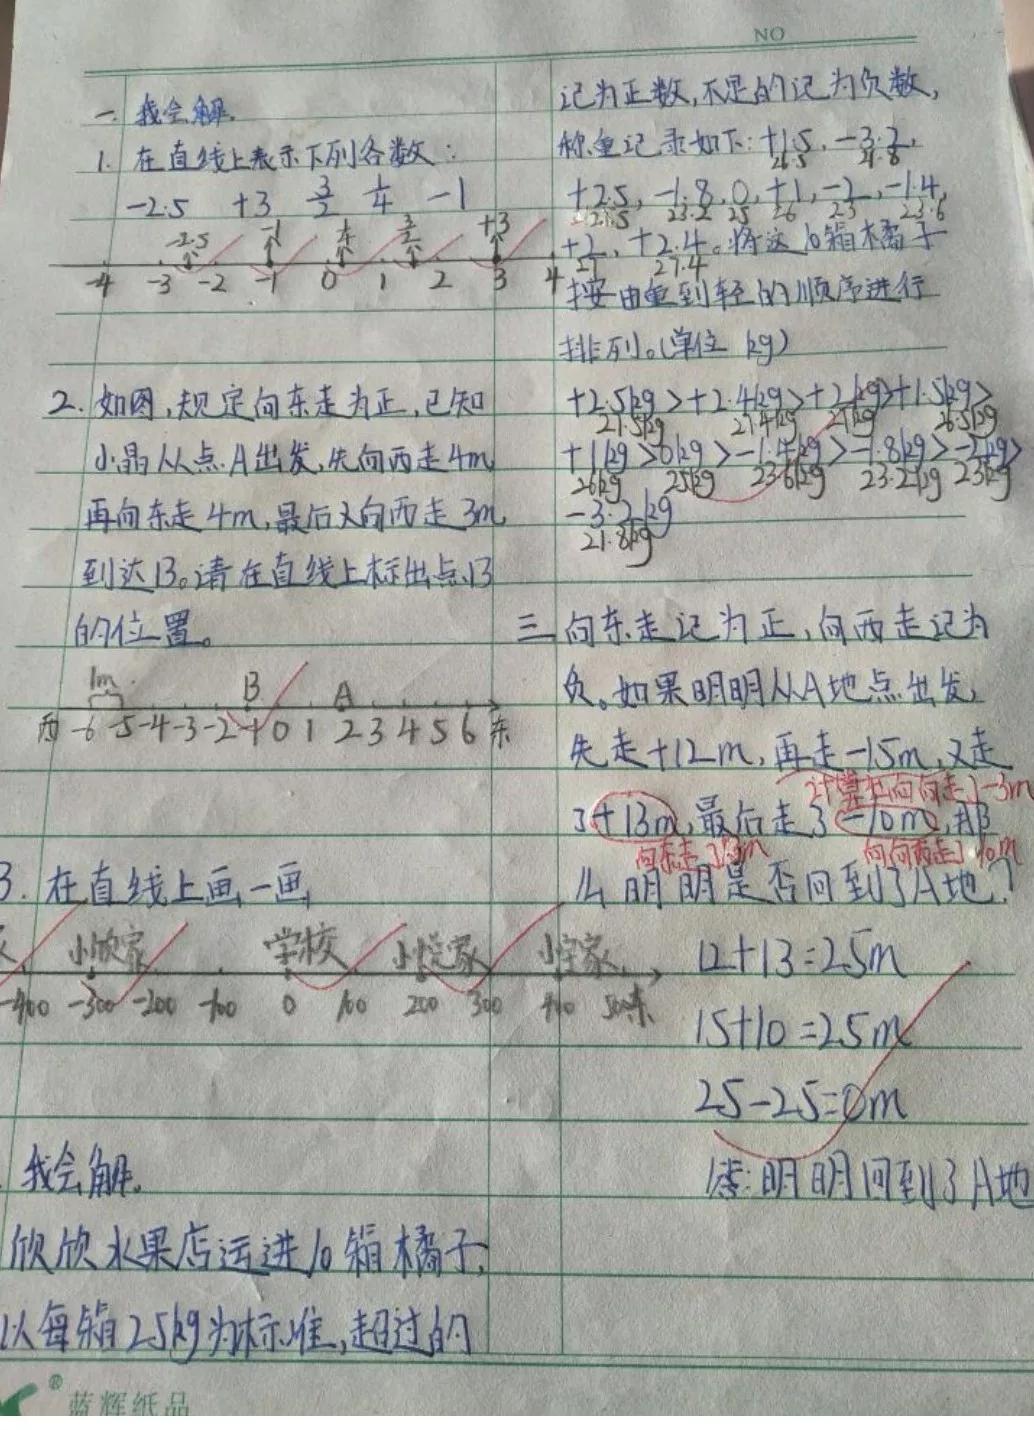 NO
一. 我会解.
1. 在直线上表示下列各数:
-2.5 +3 3/2 1/4 -1
-2.5 -1 1/4 3/2 +3
-4 -3 -2 -1 0 1 2 3 4
2. 如图,规定向东走为正,已知
小晶从点A出发,先向西走4m,
再向东走4m,最后又向西走3m,
到达B。请在直线上标出点B
的位置。
1m B A
西 -6 -5 -4 -3 -2 -1 0 1 2 3 4 5 6 东
3. 在直线上画一画
小欣家 学校 小悦家 家
-400 -300 -200 -100 0 100 200 300 400 500 东
我会解.
欣欣水果店运进10箱橘子,
以每箱25kg为标准,超过的
记为正数,不足的记为负数,
称重记录如下:+1.5, -3.2,
26.5 21.8
+2.5, -1.8, 0, +1, -2, -1.4,
27.5 23.2 25 26 23 23.6
+2, +2.4。将这10箱橘子
27 27.4
按由重到轻的顺序进行
排列。(单位 kg)
+2.5kg>+2.4kg>+2kg>+1.5kg>
27.5kg 27.4kg 27kg 26.5kg
+1kg>0kg>-1.4kg>-1.8kg>-2kg>
26kg 25kg 23.6kg 23.2kg 23kg
-3.2kg
21.8kg
三 向东走记为正,向西走记为
负。如果明明从A地点出发,
先走+12m,再走-15m,又走
了+13m,最后走了-10m,那
向东走了13m
么明明是否回到了A地?
12+13=25m
15+10=25m
25-25=0m
答:明明回到了A地
蓝辉纸品